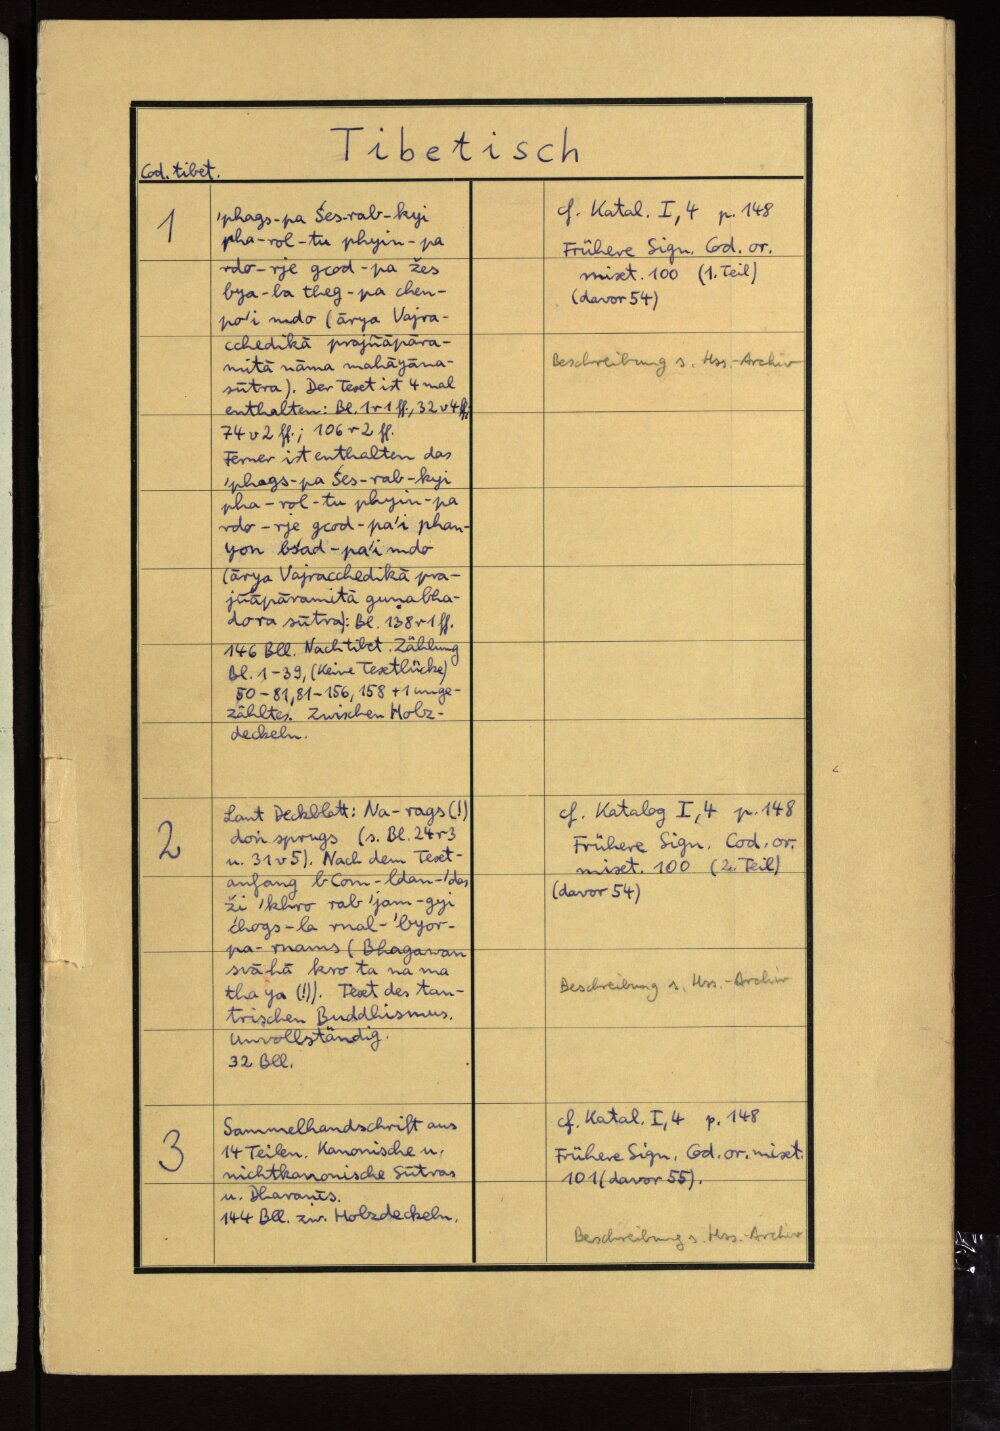 Tibetisch
Cod. tibet.
1
'phags-pa Śes-rab-kyi
pha-rol-tu phyin-pa
rdo-rje gcod-pa žes
bya-ba theg-pa chen-
po'i mdo (ārya Vajra-
cchedikā prajñāpāra-
mitā nāma mahāyāna-
sūtra). Der Text ist 4 mal
enthalten: Bl. 1r1ff., 32v4ff;
74v2ff.; 106r2ff.
Ferner ist enthalten das
'phags-pa Śes-rab-kyi
pha-rol-tu phyin-pa
rdo-rje gcod-pa'i phan-
yon bśad-pa'i mdo
(ārya Vajracchedikā pra-
jñāpāramitā guṇabha-
dora sūtra): Bl. 138r1ff.
146 Bll. Nach tibet. Zählung
Bl. 1-39, (Keine Textlücke)
50-81, 81-156, 158 + 1 unge-
zähltes. Zwischen Holz-
deckeln.
cf. Katal. I,4 p. 148
Frühere Sign. Cod. or.
mixt. 100 (1. Teil)
(davor 54)
Beschreibung s. Hss.-Archiv
2
Laut Deckblatt: Na-rags (!)
doṅ sprugs (s. Bl. 24r3
u. 31v5). Nach dem Text-
anfang bCom-ldan-'das
ži 'khro rab 'jam-gyi
čhogs-la rnal-'byor-
pa-rnams (Bhagawan
svāhā kro ta na ma
tha ya (!)). Text des tan-
trischen Buddhismus.
Unvollständig.
32 Bll.
cf. Katalog I,4 p. 148
Frühere Sign. Cod. or.
mixt. 100 (2. Teil)
(davor 54)
Beschreibung s. Hss.-Archiv
3
Sammelhandschrift aus
14 Teilen. Kanonische u.
nichtkanonische Sūtras
u. Dharaṇīs.
144 Bll. zw. Holzdeckeln.
cf. Katal. I,4 p. 148
Frühere Sign. Cod. or. mixt.
101 (davor 55).
Beschreibung s. Hss.-Archiv